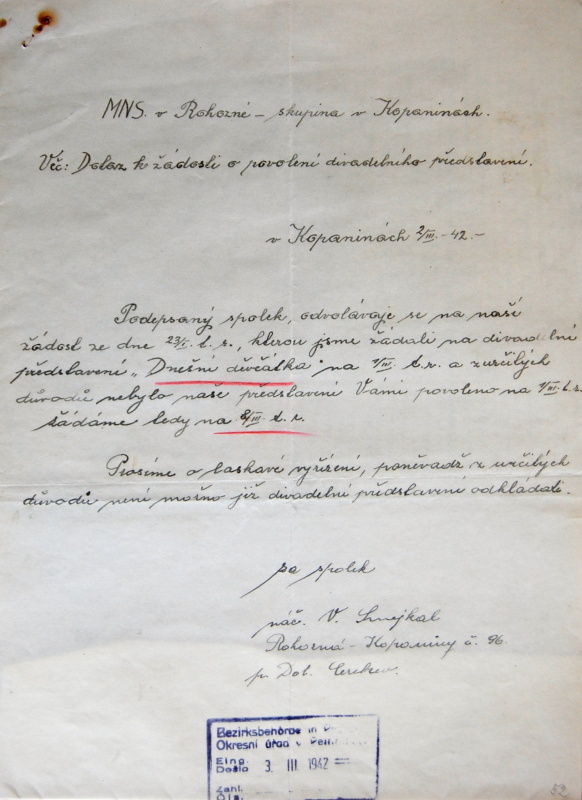 MNS. v Rohozné - skupina v Kopaninách.
Věc: Dotaz k žádosti o povolení divadelního představení.
v Kopaninách 2/III. - 42. -
Podepsaný spolek, odvolávaje se na naší
žádost ze dne 23/I. t. r., kterou jsme žádali na divadelní
představení „Dnešní děvčátka" na 7/III. t. r. a z určitých
důvodů nebylo naše představení Vámi povoleno na 7/III. t. r.
žádáme tedy na 8/III. t. r.
Prosíme o laskavé vyřízení, poněvadž z určitých
důvodů není možno již divadelní představení odkládati.
za spolek
náč. V. Smejkal
Rohozná - Kopaniny č. 96.
p. Dol. Cerekev.
Bezirksbehörde in
Okresní úřad v
Eing.
Došlo 3. III. 1942
Zahl.
Čís.
52